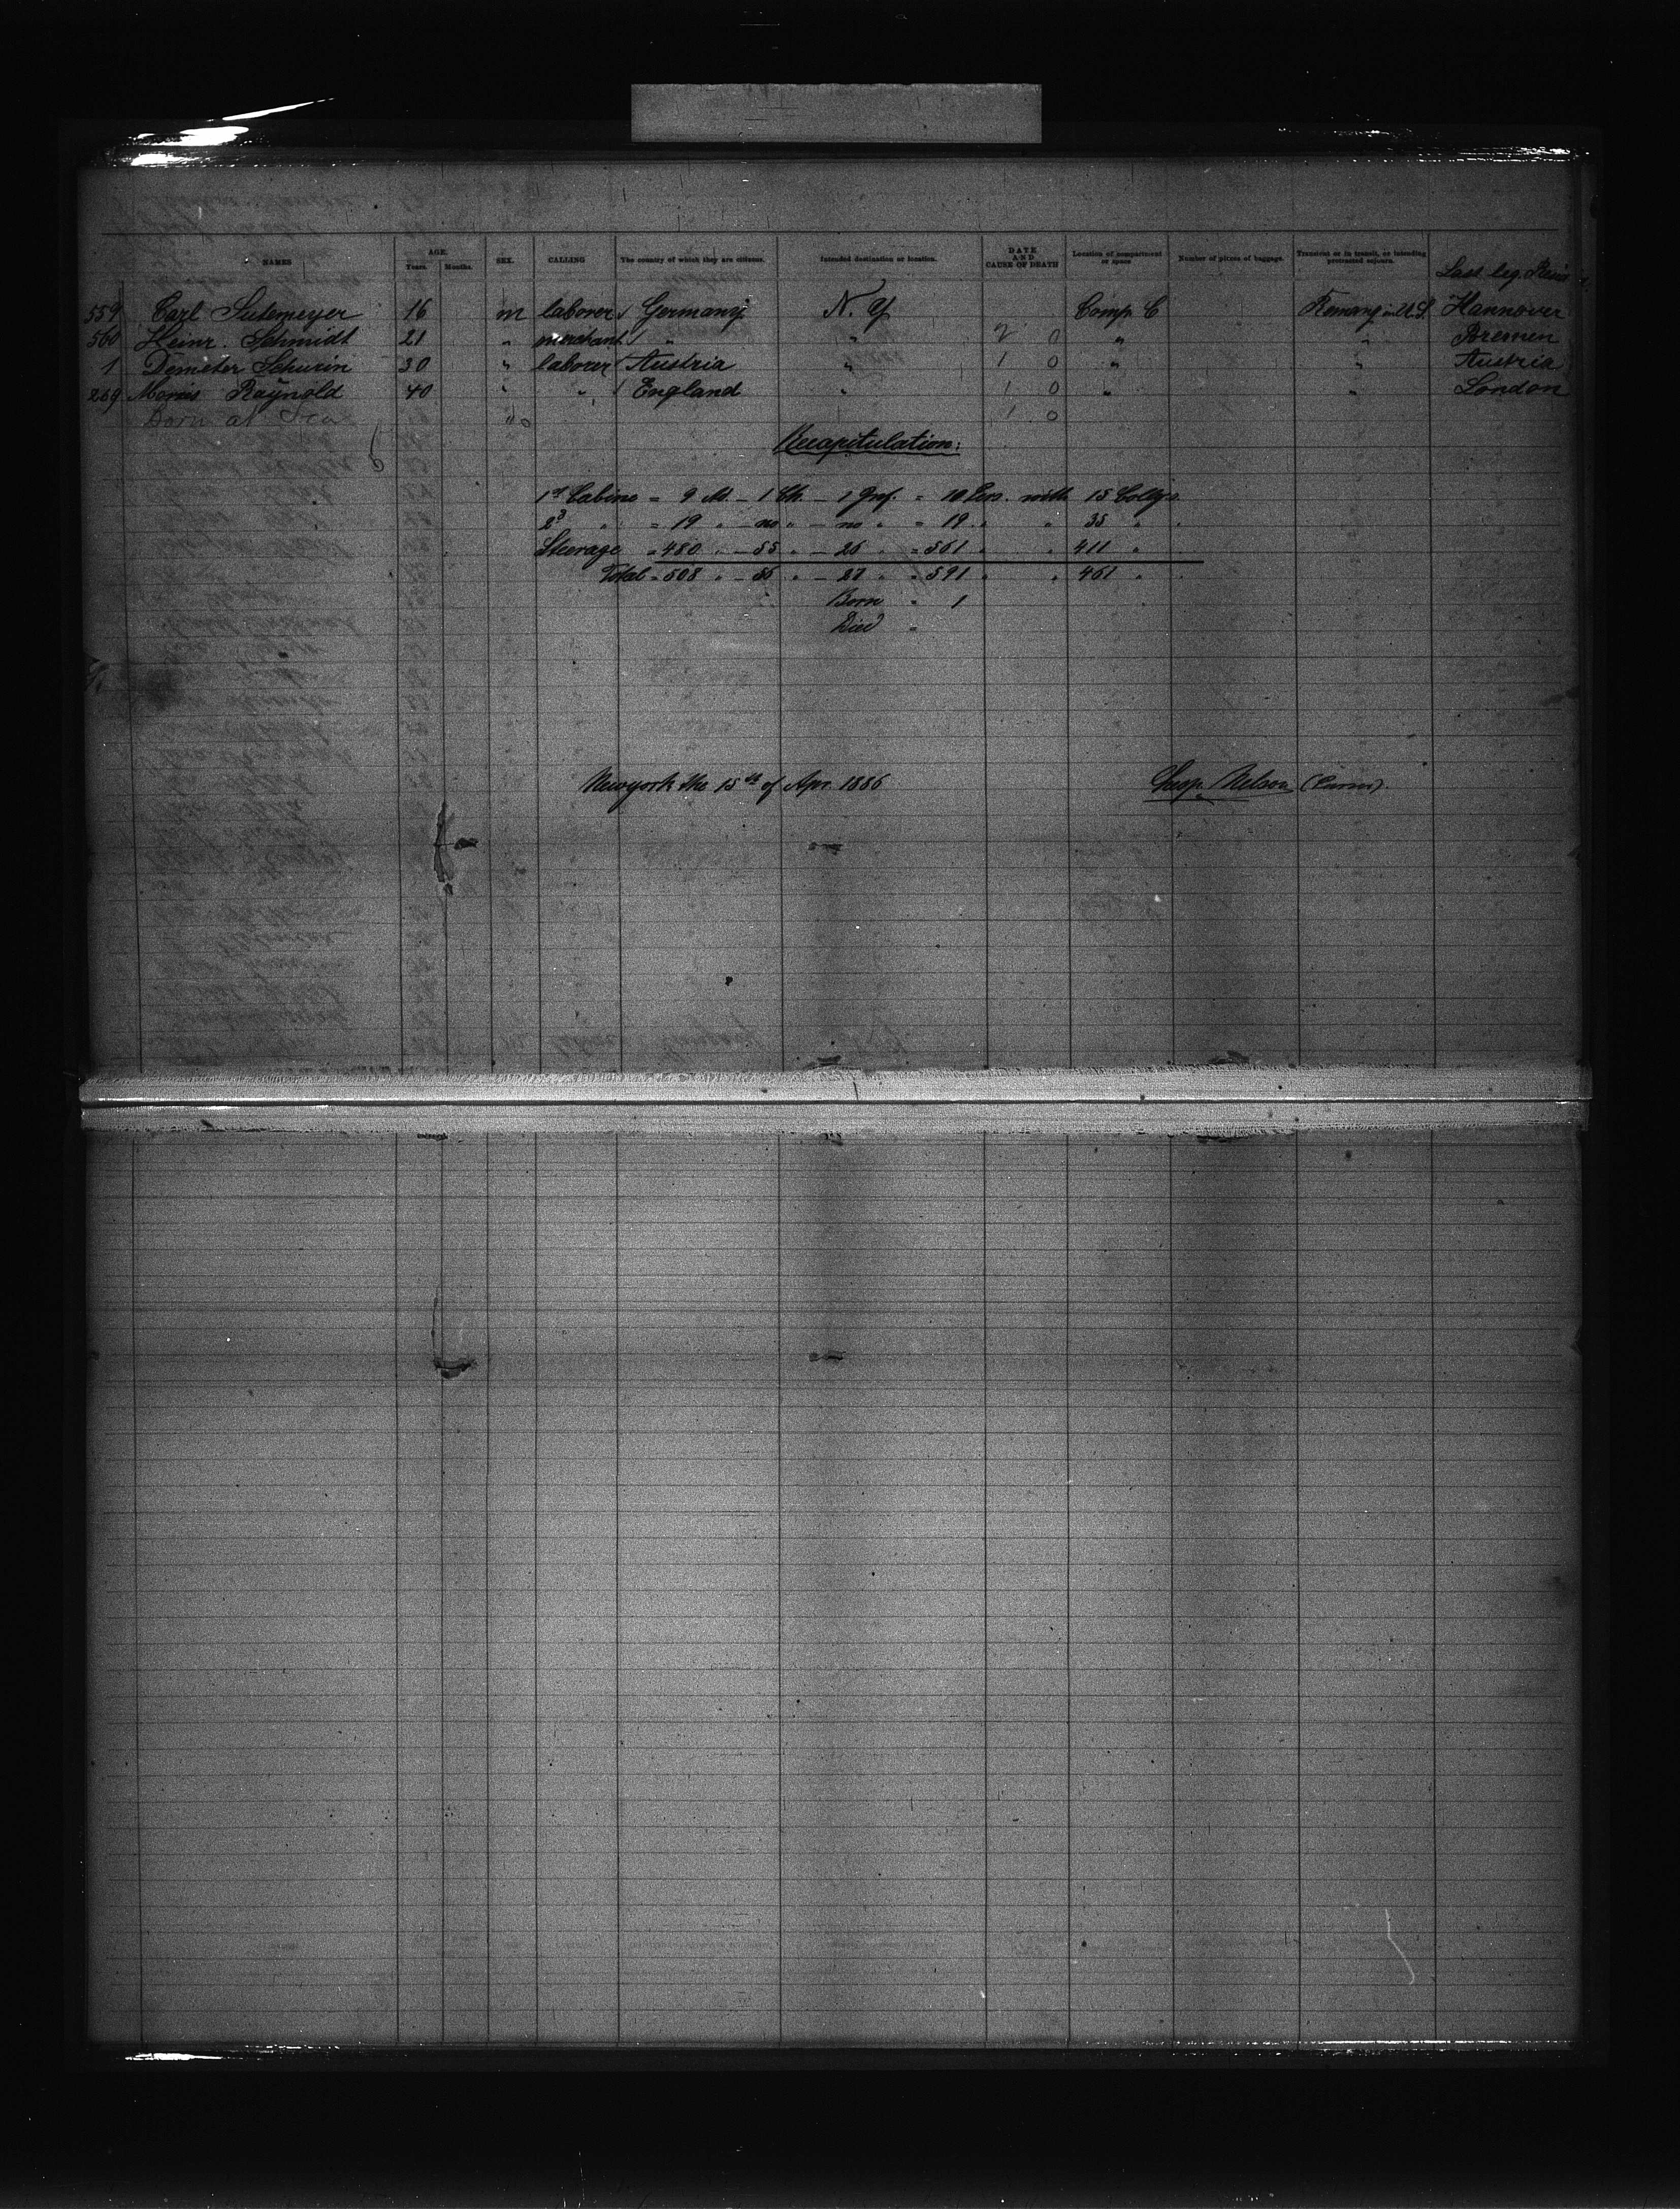 NAMES AGE. Years. Months. SEX. CALLING The country of which they are citizens. Intended destination or location. DATE AND CAUSE OF DEATH Location of compartment or space Number of pieces of baggage. Transient or in transit, or intending protracted sojourn. Last leg.
559 Carl Sutemeyer 16 m laborer Germany N. Y. Comp. C Hannover
560 Heinr. Schmidt 21 " merchant " " 2 0 " " Bremen
1 Demeter Schurin 30 " laborer Austria " 1 0 " " Austria
269 Morris Raynold 40 " " England " 1 0 " " London
Born at Sea 1 0
Recapitulation:
1st Cabine = 9 Ad. - 1 Ch. - 1 Inf. = 10 Pers. with 15 Collys.
2d " = 19 " - no " - no " = 19 " " 35 "
Steerage = 480 " - 55 " - 26 " = 561 " " 411 "
Total = 508 " - 56 " - 27 " = 591 " " 461 "
Born = 1
Died =
Newyork the 15th of Apr. 1886 Nelson (Purser).